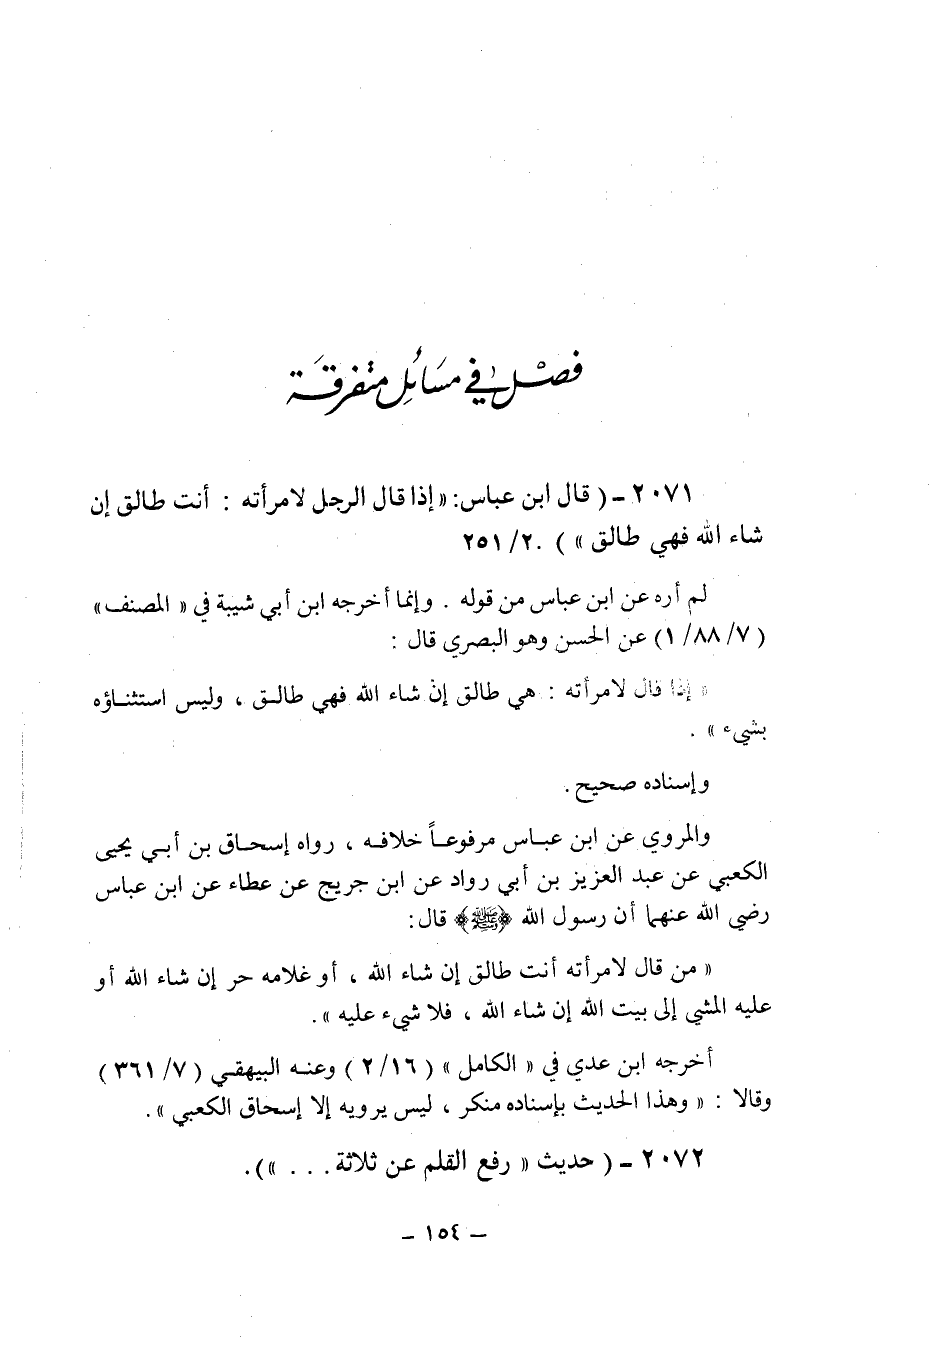 فصل في مسائل متفرقة
٢٠٧١ ـ ( قال ابن عباس: « إذا قال الرجل لامرأته : أنت طالق إن
شاء الله فهي طالق » ) .٢٥١/٢
لم أره عن ابن عباس من قوله . وإنما أخرجه ابن أبي شيبة في « المصنف »
(١/٨٨/٧) عن الحسن وهو البصري قال :
« إذا قال لامرأته : هي طالق إن شاء الله فهي طالق ، وليس استثناؤه
بشيء » .
وإسناده صحيح .
والمروي عن ابن عباس مرفوعاً خلافه ، رواه إسحاق بن أبي يحيى
الكعبي عن عبد العزيز بن أبي رواد عن ابن جريج عن عطاء عن ابن عباس
رضي الله عنهما أن رسول الله ﴿ﷺ﴾ قال:
« من قال لامرأته أنت طالق إن شاء الله ، أو غلامه حر إن شاء الله أو
عليه المشي إلى بيت الله إن شاء الله ، فلا شيء عليه ».
أخرجه ابن عدي في « الكامل » ( ٢/١٦ ) وعنه البيهقي ( ٣٦١/٧ )
وقالا : « وهذا الحديث بإسناده منكر ، ليس يرويه إلا إسحاق الكعبي ».
٢٠٧٢ ـ ( حديث « رفع القلم عن ثلاثة . . . »).
ـ ١٥٤ ـ